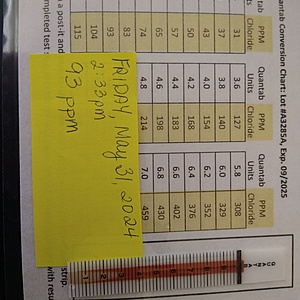 Quantab Conversion Chart: Lot #A3285A, Exp. 09/2025
PPM Chloride Quantab Units PPM Chloride Quantab Units PPM Chloride
31 3.6 127 5.8 308
37 3.8 140 6.0 329
43 4.0 154 6.2 352
50 4.2 168 6.4 376
57 4.4 183 6.6 402
65 4.6 198 6.8 430
74 4.8 214 7.0 459
83
93
104
115
a post-it and
completed test
strip.
with
FRIDAY, May 31, 2024
2:33pm
93 ppm
QUANTAB
1
2
3
4
5
6
7
8